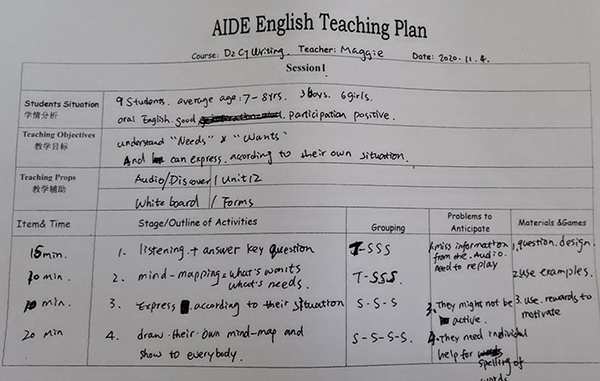 AIDE English Teaching Plan
Course: D2 C7 Writing. Teacher: Maggie Date: 2020.11.4.
Session1
Students Situation
学情分析
9 Students. average age: 7-8yrs. 3boys. 6girls.
oral English. good participation positive.
Teaching Objectives
教学目标
understand "Needs" & "Wants"
And can express. according to their own situation.
Teaching Props
教学辅助
Audio/Discover | Unit12
White board / Forms
Item& Time Stage/Outline of Activities Grouping Problems to Anticipate Materials &Games
15 min. 1. listening + answer key question T-SSS 1.miss information from the Audio. need to replay 1.question. design.
2. mind-mapping: what's wants what's needs. T-SSS. 2.use examples.
3. Express according to their situation S-S-S 3. They might not be active. 3. use rewards to motivate
20 min 4. draw their own mind-map and show to everybody. S-S-S-S. 4. They need individual help for spelling of words